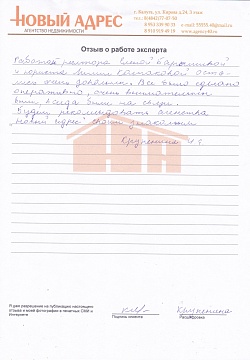 НОВЫЙ АДРЕС
АГЕНТСТВО НЕДВИЖИМОСТИ
г. Калуга, ул. Кирова д.24, 3 этаж
тел.: 8(4842)77-07-50
Отзыв о работе эксперта
Работой риэлтора Еленой
и юриста Лилии оста-
лись очень довольны. Все было сделано
оперативно, очень внимательны
были, всегда были на связи.
Будем рекомендовать агентство
"Новый адрес" своим знакомым
Я даю разрешение на публикацию настоящего
отзыва и моей фотографии в печатных СМИ и
Интернете
Подпись клиента
Расшифровка